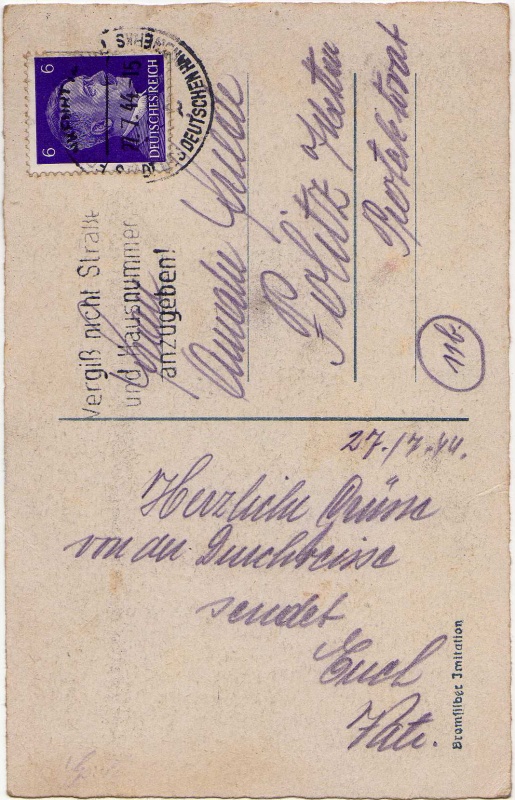 27./7.44.
Herzliche Grüsse
von der Durchreise
sendet
Euch
Vati.
Bromsilber Imitation
6 6
DEUTSCHES REICH
27.7.44-15
DEUTSCHEN
Vergiß nicht Straße
und Hausnummer
anzugeben!
Amalie
Politz
Protektorat
11b.